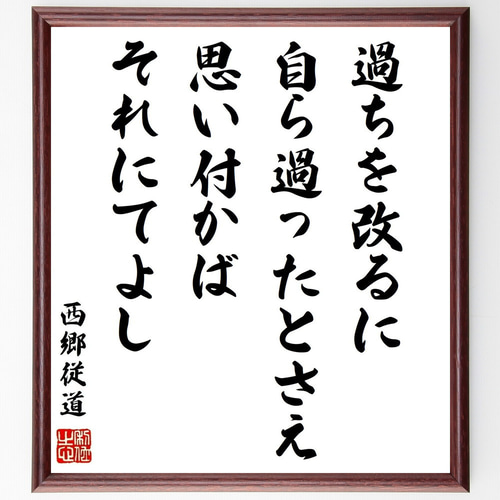 過ちを改るに
自ら過ったとさえ
思い付かば
それにてよし
西郷従道